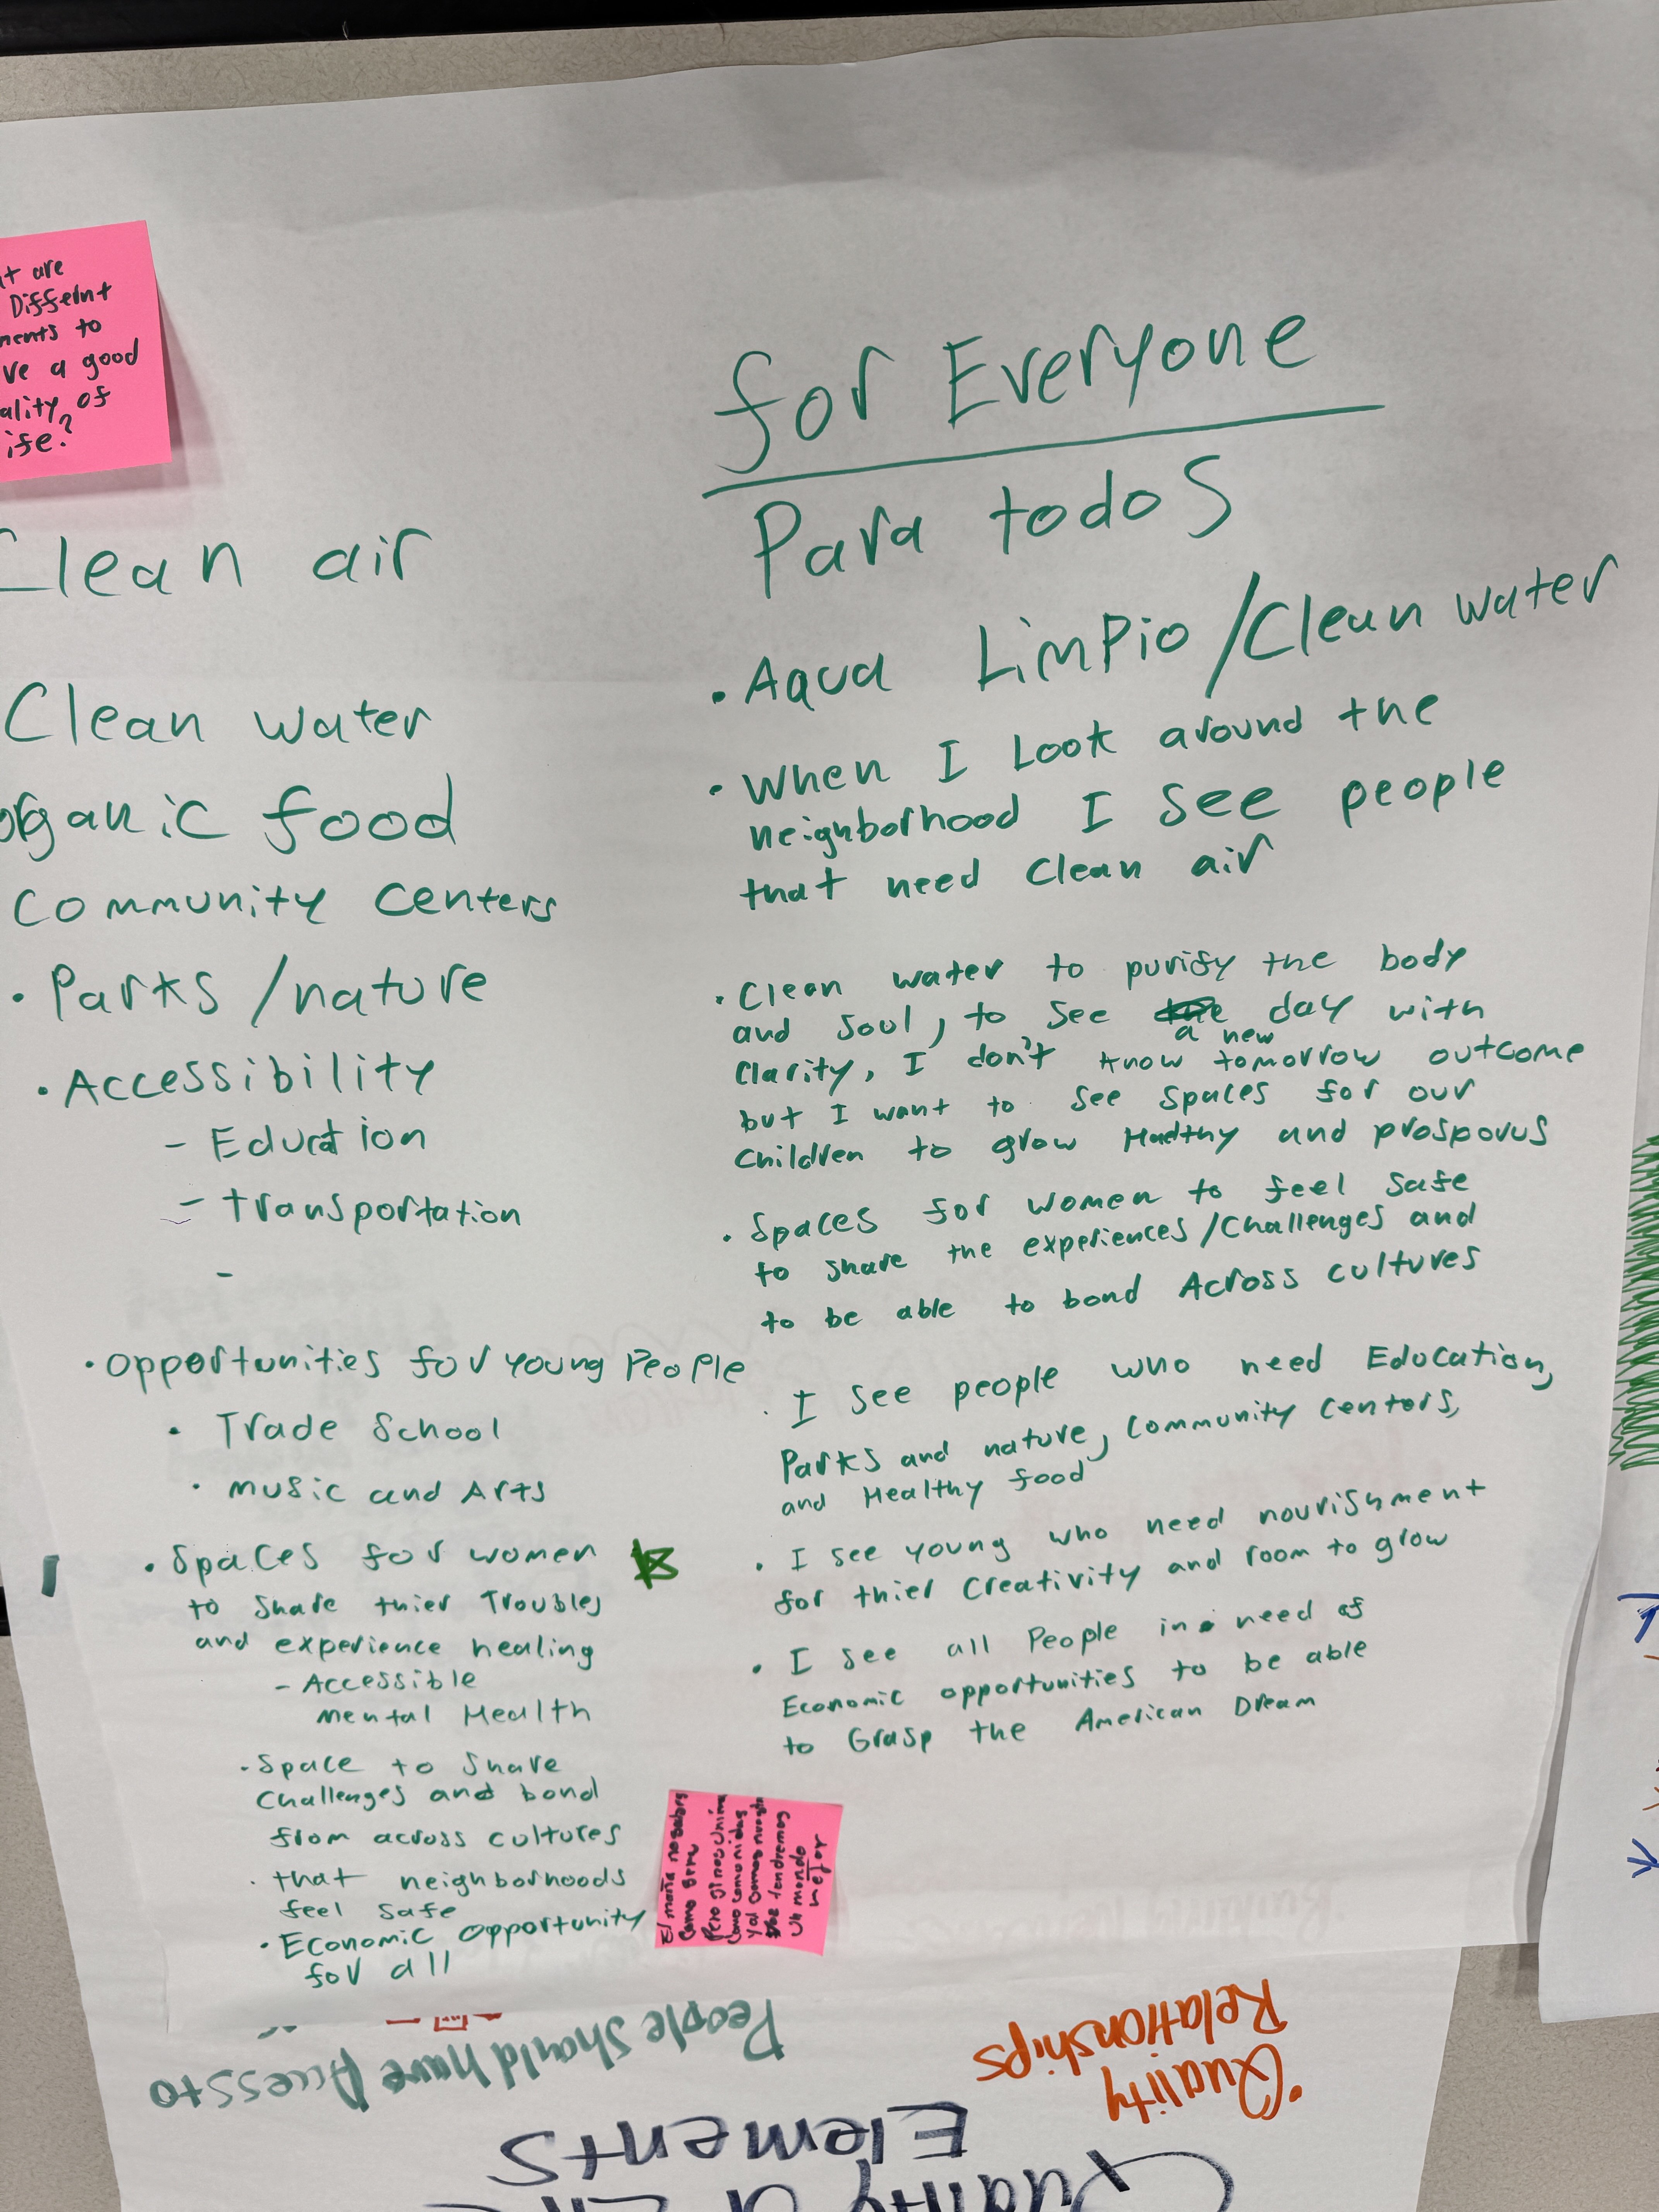 are
Differnt
to
a good
of
Clean air
Clean water
organic food
Community Centers
• Parks / nature
• Accessibility
- Education
- transportation
-
• opportunities for Young People
• Trade School
• music and Arts
• Spaces for women
to Share thier Troubles
and experience healing
- Accessible
mental Health
• Space to Share
Challenges and bond
from across cultures
• that neighborhoods
feel safe
• Economic opportunity
for all
for Everyone
Para todos
• Aqua Limpio / Clean water
• When I Look around the
neighborhood I see people
that need clean air
• Clean water to purify the body
and soul, to see a new day with
Clarity, I don't know tomorrow outcome
but I want to see spaces for our
Children to grow and prosporus
• Spaces for women to feel safe
to share the experiences/Challenges and
to be able to bond Across cultures
• I see people who need Education,
Parks and nature, Community Centors,
and Healthy food
• I see young who need nourishment
for thier Creativity and room to grow
• I see all People in need of
Economic opportunities to be able
to Grasp the American Dream
El
como
Pero
como
y
tendremos
un mondo
People Should have Access to
• Quality
Relationships
Elements